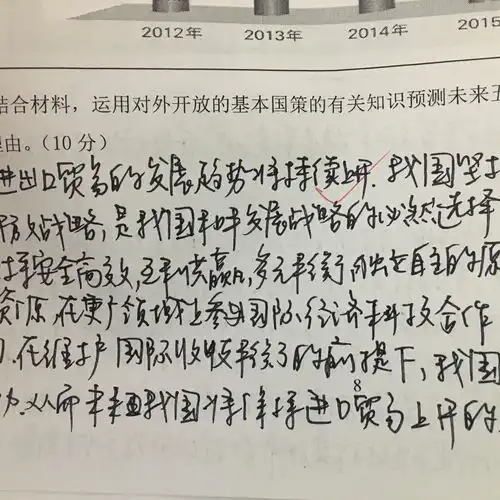 2012年 2013年 2014年 2015
结合材料，运用对外开放的基本国策的有关知识预测未来五
理由。（10 分）
进出口贸易的发展趋势将持续上升. 我国坚持
开放战略, 是我国和平发展战略的必然选择
持安全高效, 互利共赢, 多元平衡 自主的原
资源, 在更广领域上参与国际经济科技合作
在维护国际收支平衡的前提下, 我国
8
从而未来我国将保持进口贸易上升的